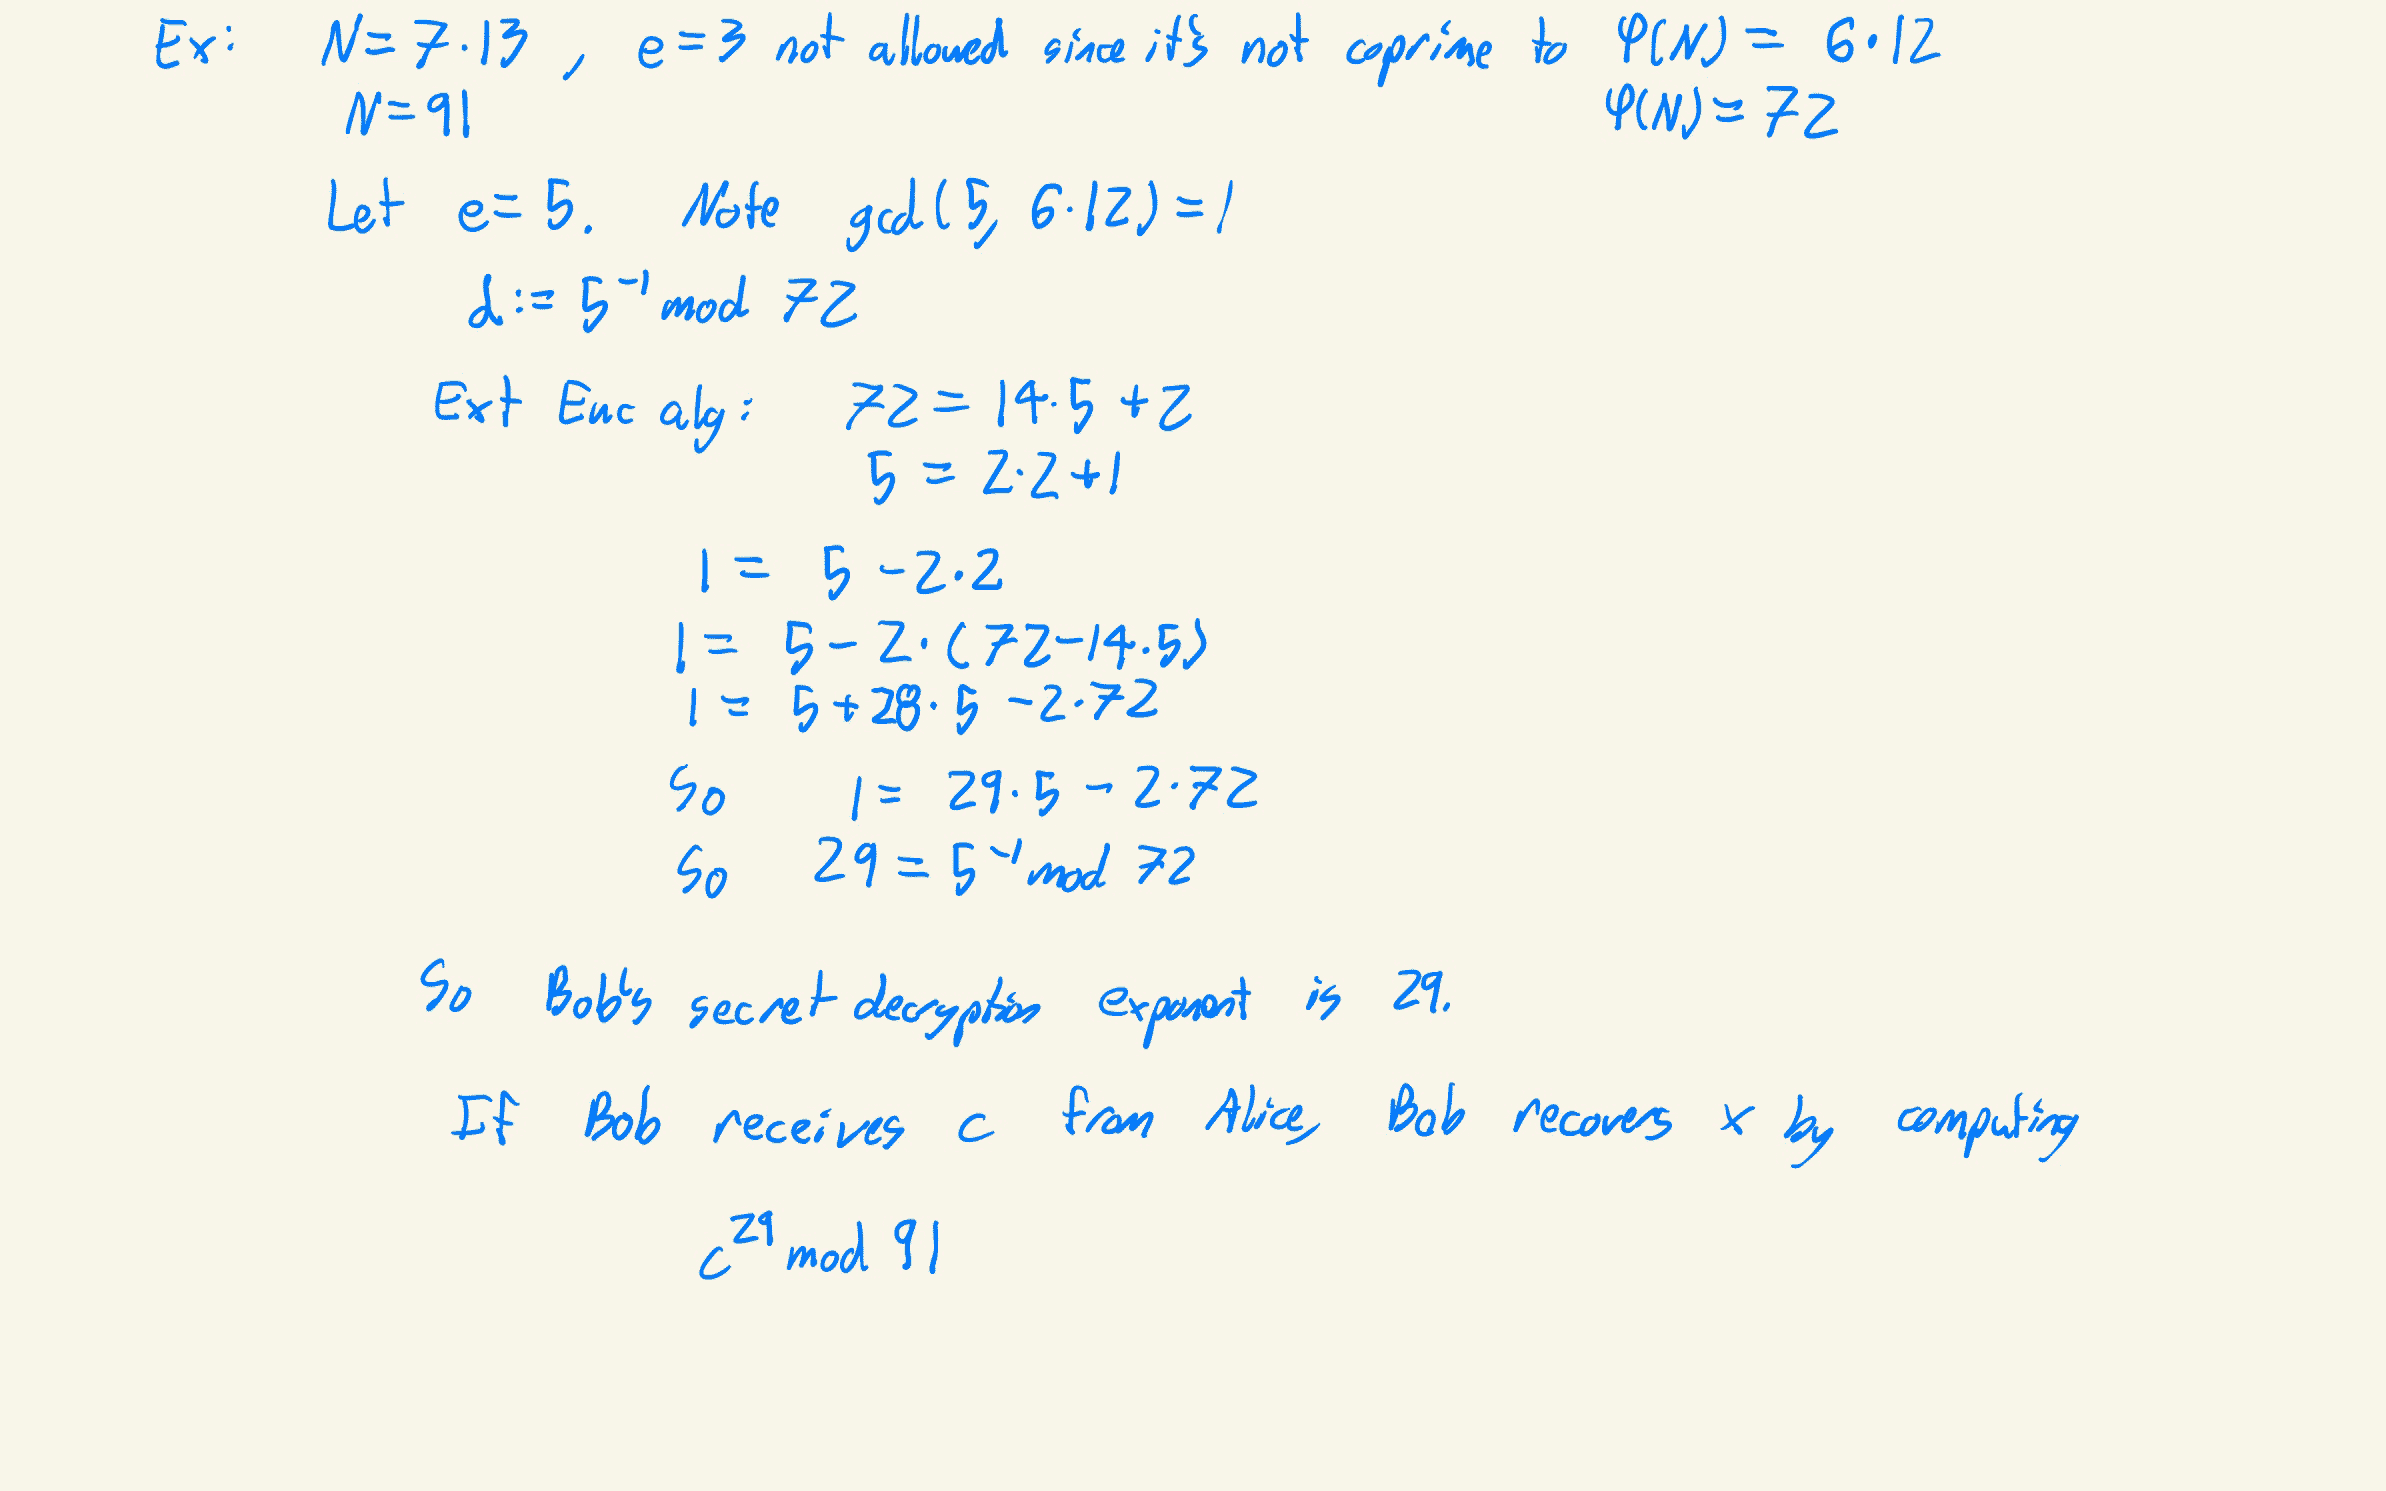 Ex: N=7·13, e=3 not allowed since it's not coprime to φ(N) = 6·12
N=91 φ(N)=72
Let e=5. Note gcd(5, 6·12)=1
d:= 5⁻¹ mod 72
Ext Euc alg: 72 = 14·5+2
5 = 2·2+1
1 = 5-2·2
1 = 5-2·(72-14·5)
1 = 5+28·5-2·72
So 1 = 29·5-2·72
So 29 = 5⁻¹ mod 72
So Bob's secret decryption exponent is 29.
If Bob receives c from Alice, Bob recovers x by computing
c²⁹ mod 91